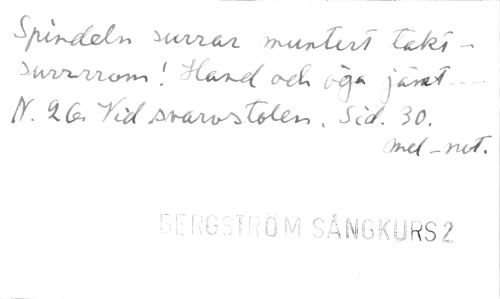 Spindeln surrar muntert takt -
surrrrom! Hand och öga jämt ---
N. 26. Vid svarvstolen. Sid. 30.
mel-not.
BERGSTRÖM SÅNGKURS 2